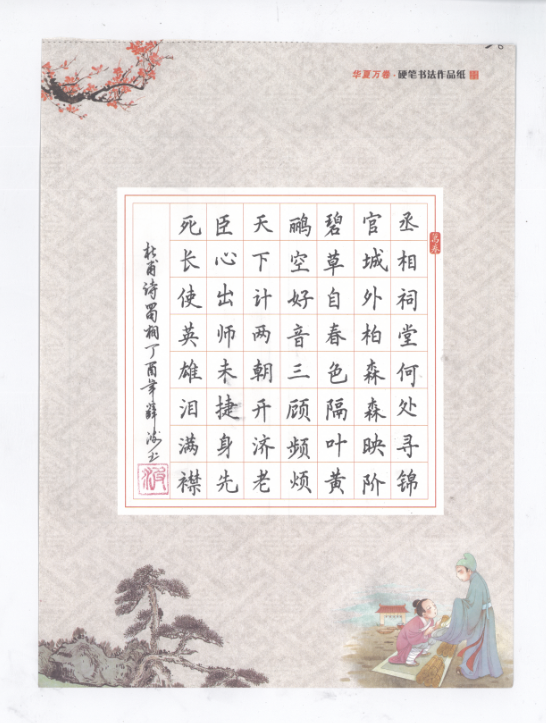 华夏万卷·硬笔书法作品纸
丞相祠堂何处寻锦
官城外柏森森映阶
碧草自春色隔叶黄
鹂空好音三顾频烦
天下计两朝开济老
臣心出师未捷身先
死长使英雄泪满襟
杜甫诗蜀相丁酉年薛